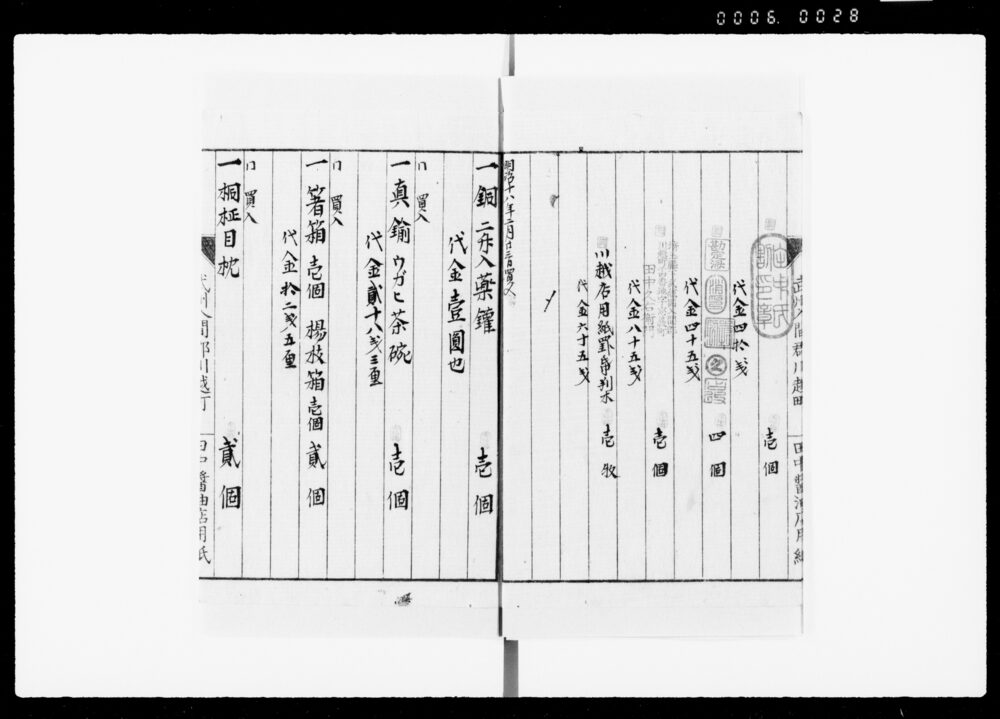 0006. 0028
武州入間郡川越田
田中醤油店用紙
壱個
代金四拾戔
四個
代金四十五戔
壱個
代金八十五戔
川越店用紙罫爭判木 壱牧
代金六十五戔
明治十八年二月廿三日買入
一銅二升入薬鑵 壱個
代金壹圓也
〃買入
一真鍮ウガヒ茶碗 壱個
代金貳十八戔三厘
〃買入
一箸箱壱個 楊枝箱壱個 貳個
代金拾二戔五厘
〃買入
一桐柾目枕 貳個
武州入間郡川越町
田中醤油店用紙